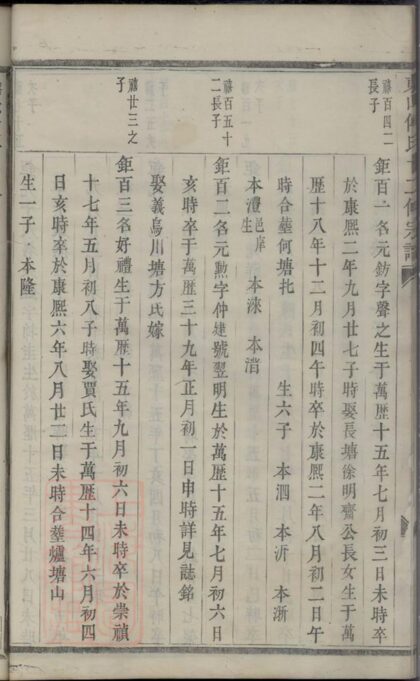 禧百四二
長子
鉅百一名元鈁字聲之生于萬歷十五年七月初三日未時卒
於康熙二年九月廿七子時娶長塘徐明齋公長女生于萬
歷十八年十二月初四午時卒於康熙二年八月初二日午
時合塟何塘圫
生六子 本泗 本沂 本浙
本澧邑庠 本淶 本渻
禧百五十
二長子
鉅百二名元勲字仲建號翌明生於萬歷十五年七月初六日
亥時卒于萬歷三十九年正月初一日申時詳見誌銘
娶義烏川塘方氏嫁
禧廿三之
子
鉅百三名好禮生于萬歷十五年九月初六日未時卒於崇禎
十七年五月初八子時娶賈氏生于萬歷十四年六月初四
日亥時卒於康熙六年八月廿二日未時合塟爐塘山
生一子 本隆